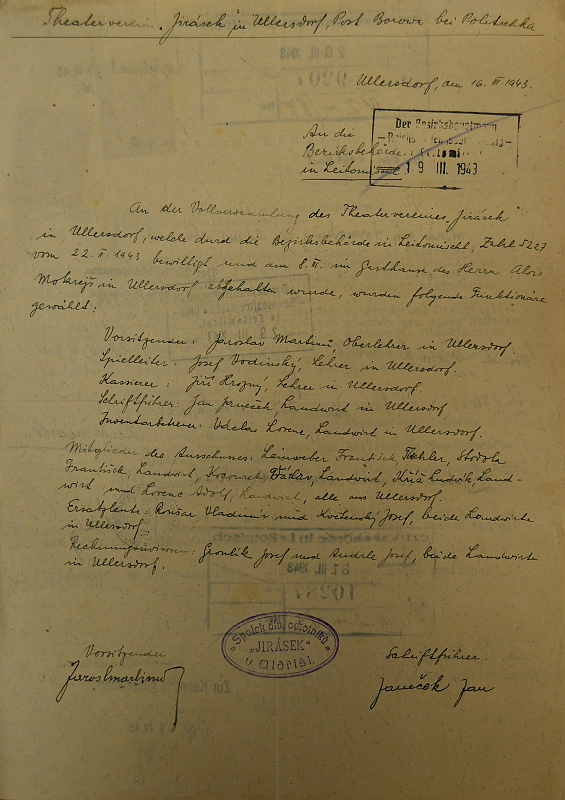 Theaterverein „Jirásek" in Ullersdorf, Post Borowa bei Politschka
Ullersdorf, am 16. III 1943.
An die
Bezirksbehörde
in Leitomischl
Der Bezirkshauptmann
19 III. 1943
An der Vollversammlung des Theatervereines „Jirásek"
in Ullersdorf, welche durch die Bezirksbehörde in Leitomischl, Zahl 5227
vom 22. II 1943 bewilligt und am 8. III. im Gasthause des Herrn Alois
Mokrejš in Ullersdorf abgehalten wurde, wurden folgende Funktionäre
gewählt:
Vorsitzender: Jaroslav Martinů, Oberlehrer in Ullersdorf.
Spielleiter: Josef Vodinský, Lehrer in Ullersdorf.
Kassierer: Jiří Hrozný, Lehrer in Ullersdorf.
Schriftführer: Jan Janeček, Landwirt in Ullersdorf
Inventarbetreuer: Václav Lorenc, Landwirt in Ullersdorf.
Mitglieder des Ausschusses: Leinweber František, Stodola
František, Landwirt, Václav, Landwirt, Kříž Ludvík, Land-
wirt und Lorenc Adolf, Landwirt, alle aus Ullersdorf.
Ersatzleute: Roušar Vladimír und Josef, beide Landwirte
in Ullersdorf.
Rechnungsrevisoren: Josef und Andrle Josef, beide Landwirte
in Ullersdorf.
Vorsitzender
Jaroslav Martinů
Spolek div. ochotníků
„JIRÁSEK"
v Oldřiši.
Schriftführer.
Janeček Jan